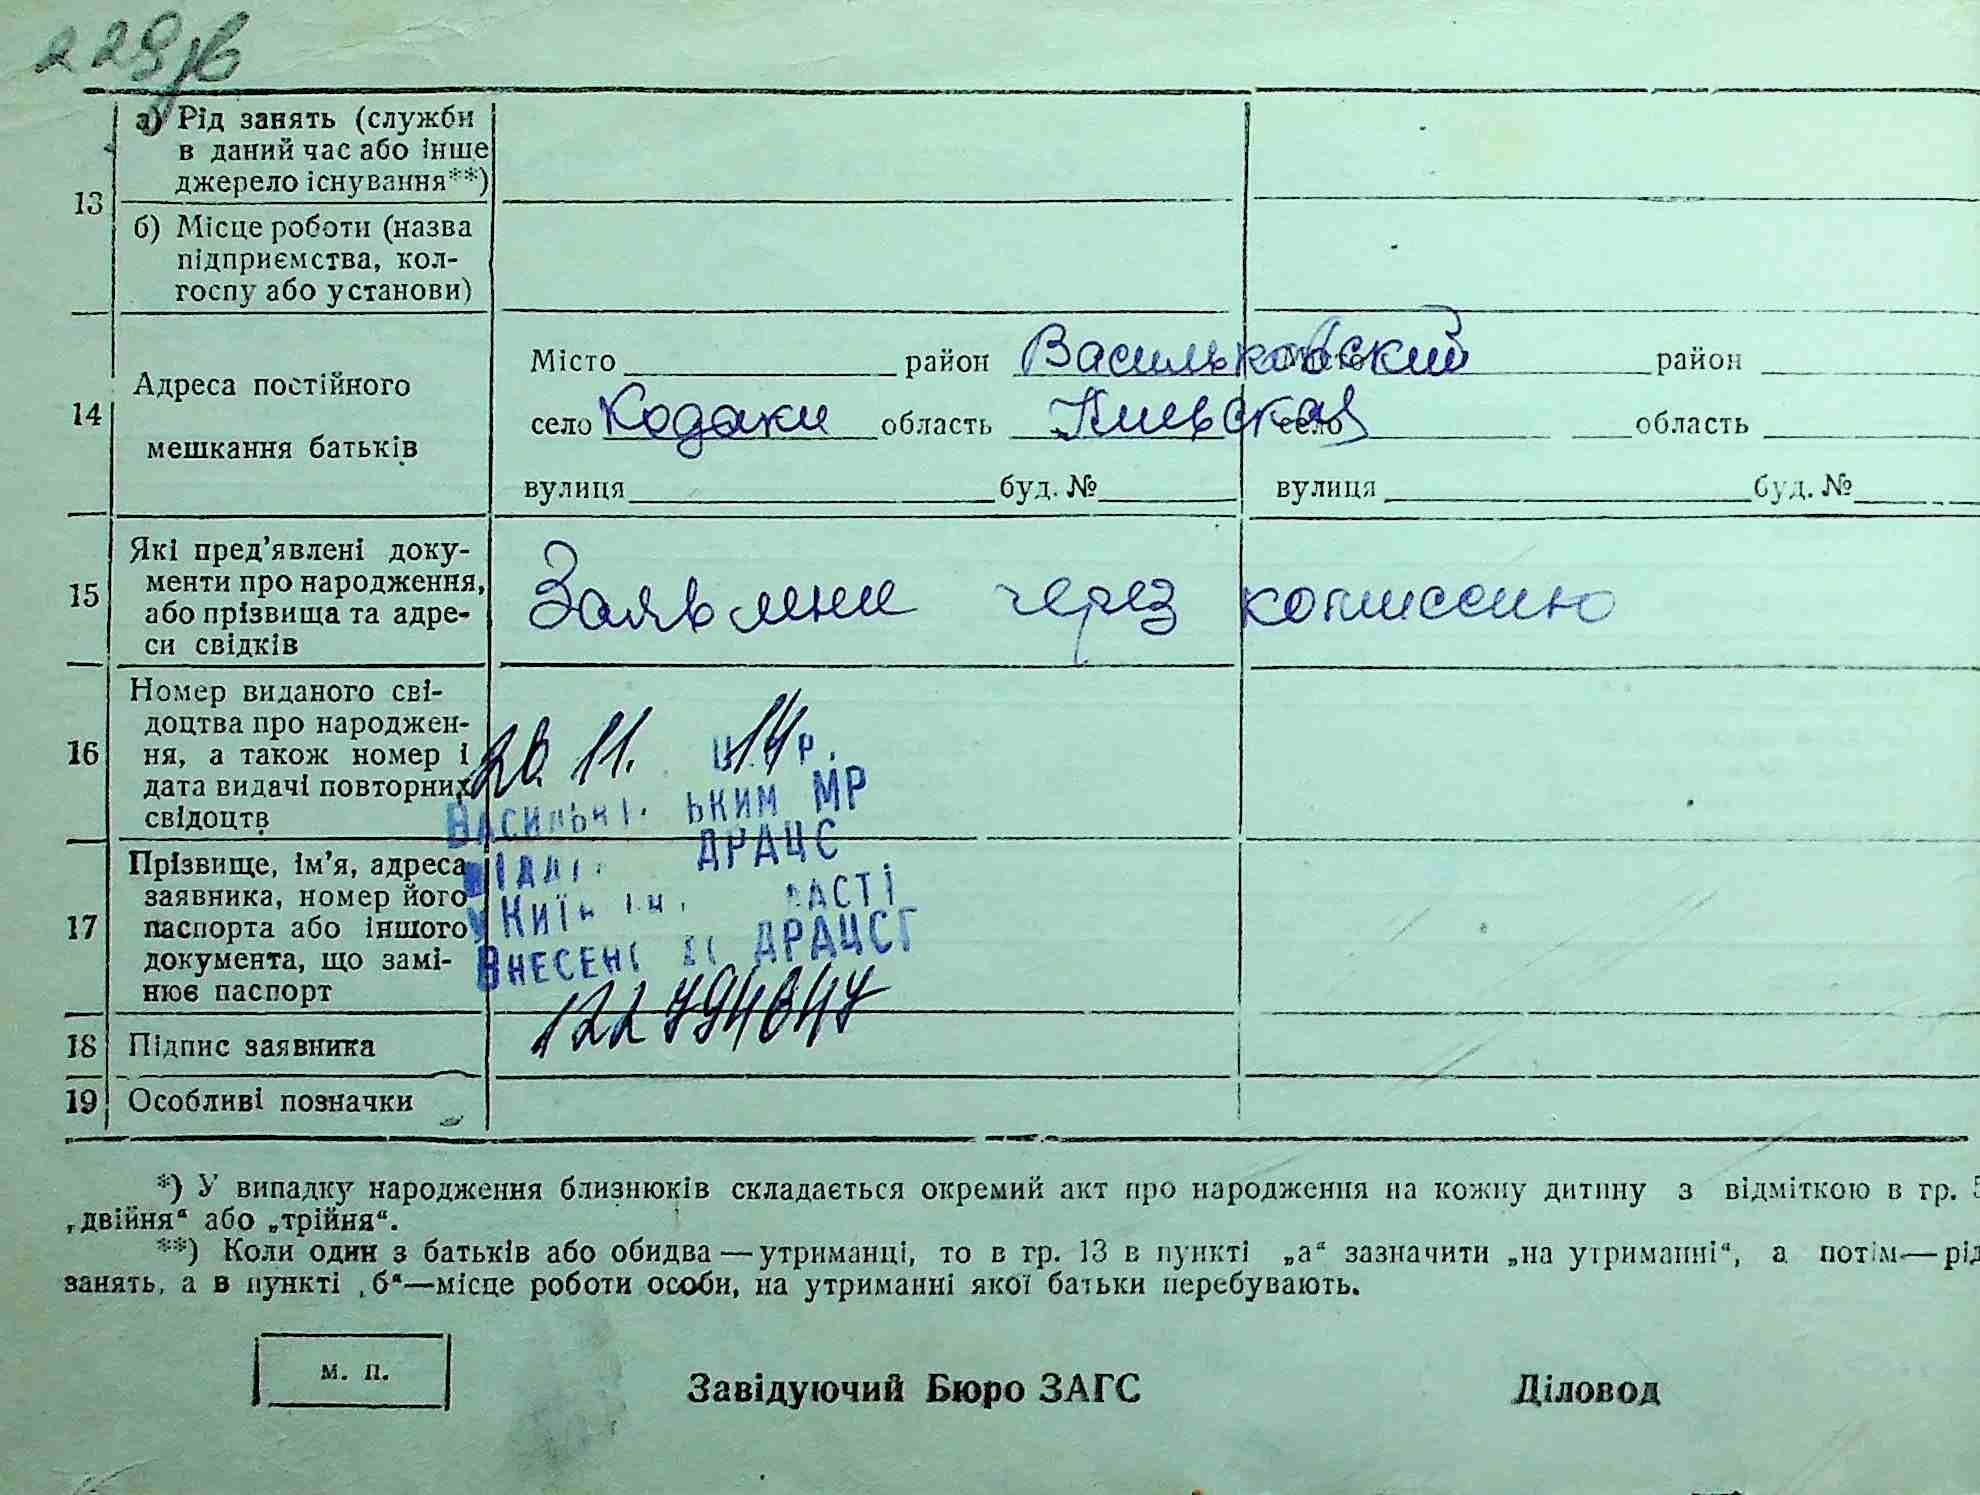 а) Рід занять (служби
в даний час або інше
джерело існування**)
13
б) Місце роботи (назва
підприємства, кол-
госпу або установи)
14
Адреса постійного
мешкання батьків
Місто район Васильковский Місто район
село Кодаки область Киевская село область
вулиця буд. № вулиця буд. №
15
Які пред’явлені доку-
менти про народження,
або прізвища та адре-
си свідків
Заявлени через комиссию
16
Номер виданого сві-
доцтва про народжен-
ня, а також номер і
дата видачі повторних
свідоцтв
20. 11. 14 р.
ьким МР
ДРАЦС
17
Прізвище, ім’я, адреса
заявника, номер його
паспорта або іншого
документа, що замі-
нює паспорт
Внесено ДРАЦСГ
18 Підпис заявника
19 Особливі позначки
*) У випадку народження близнюків складається окремий акт про народження на кожну дитину з відміткою в гр. 5
„двійня“ або „трійня“.
**) Коли один з батьків або обидва—утриманці, то в гр. 13 в пункті „а“ зазначити „на утриманні“, а потім—рід
занять, а в пункті „б“—місце роботи особи, на утриманні якої батьки перебувають.
м. п.
Завідуючий Бюро ЗАГС Діловод